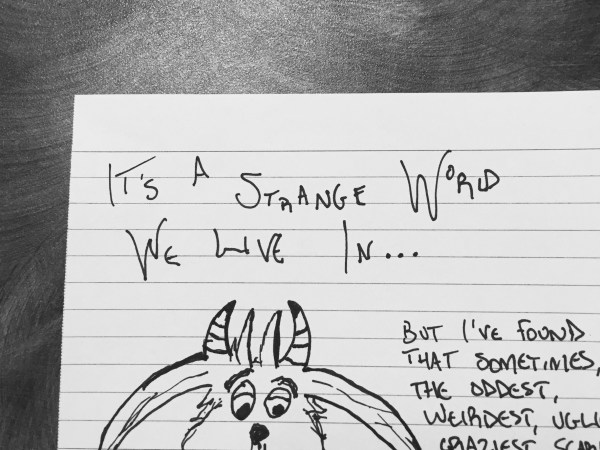 IT'S A STRANGE WORLD
WE LIVE IN...
BUT I'VE FOUND
THAT SOMETIMES,
THE ODDEST,
WEIRDEST,
CRAZIEST